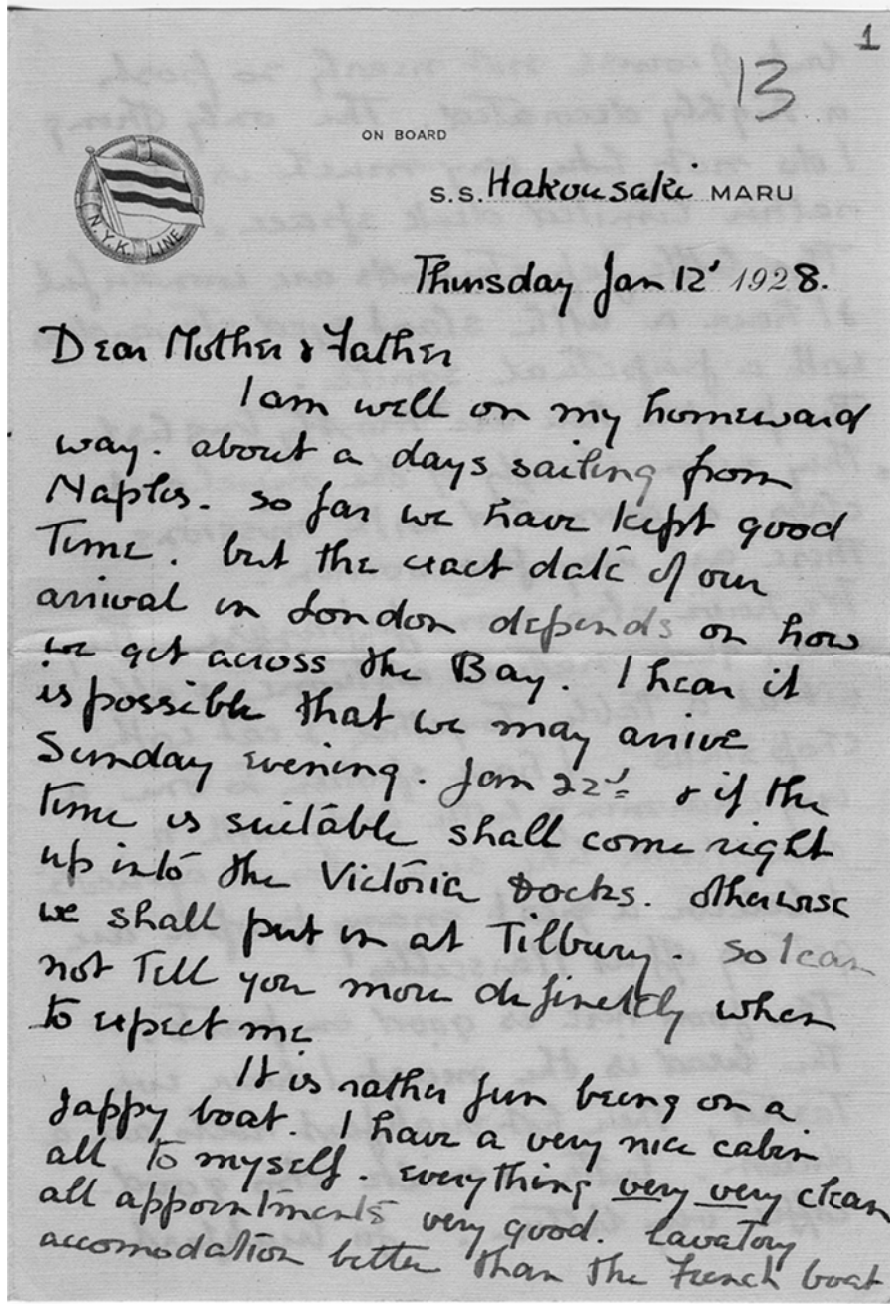 1
13
ON BOARD
N.Y.K. LINE
S.S. Hakousaki MARU
Thursday Jan 12' 1928.
Dear Mother & Father
I am well on my homeward
way. about a days sailing from
Naples. so far we have kept good
Time. but the exact date of our
arrival in London depends on how
we get across the Bay. I hear it
is possible that we may arrive
Sunday evening. Jan 22' & if the
time is suitable shall come right
up into the Victoria Docks. otherwise
we shall put in at Tilbury. So I can
not Tell you more definetely when
to expect me
It is rather fun being on a
Jappy boat. I have a very nice cabin
all to myself. everything very very clean
all appointments very good. Lavatory
accomodation better than the French boat